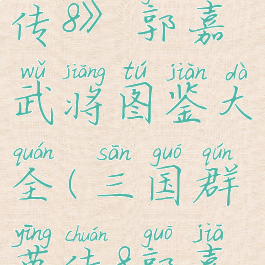 传8》郭嘉
wǔ jiāng tú jiàn dà
武将图鉴大
quán sān guó qún
全(三国群
yīng chuán guō jiā
英传8郭嘉